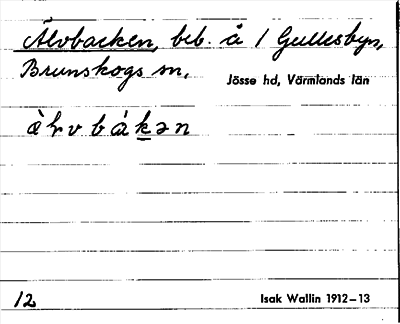 Älvbacken, beb. å 1 Gullesbyn,
Brunskogs sn,
Jösse hd, Värmlands län
12
Isak Wallin 1912–13